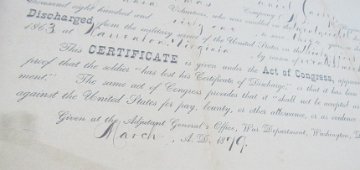 Thousand eight hundred and
Volunteers, who was enlisted on the
Discharged from the military service of the United States
1863 at Warrenton Virginia by reason of
This CERTIFICATE is given under the Act of Congress, approved
proof that the soldier "has lost his Certificate of Discharge," or that it has been
ment." The same act of Congress provides that it "shall not be accepted as
against the United States for pay, bounty, or other allowance, or as evidence
Given at the Adjutant General's Office, War Department, Washington, D
March , A. D. 1879.